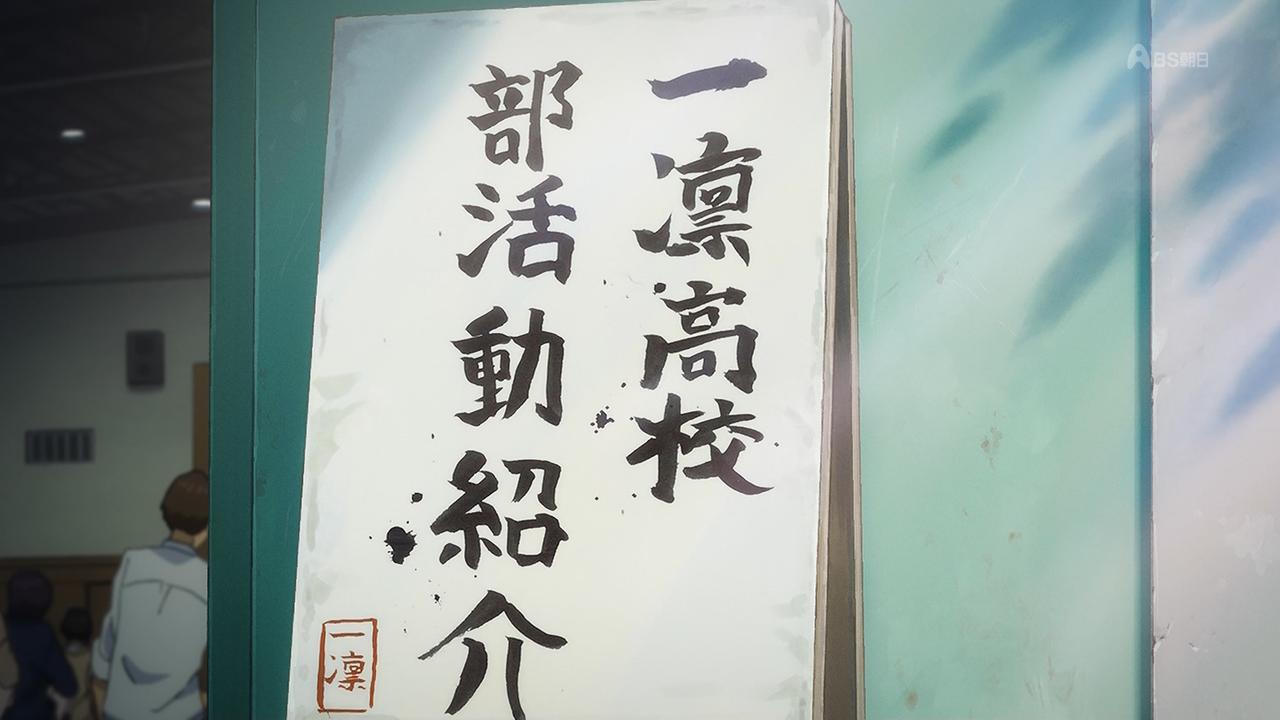 一凛高校
部活動紹介
一凛
BS朝日